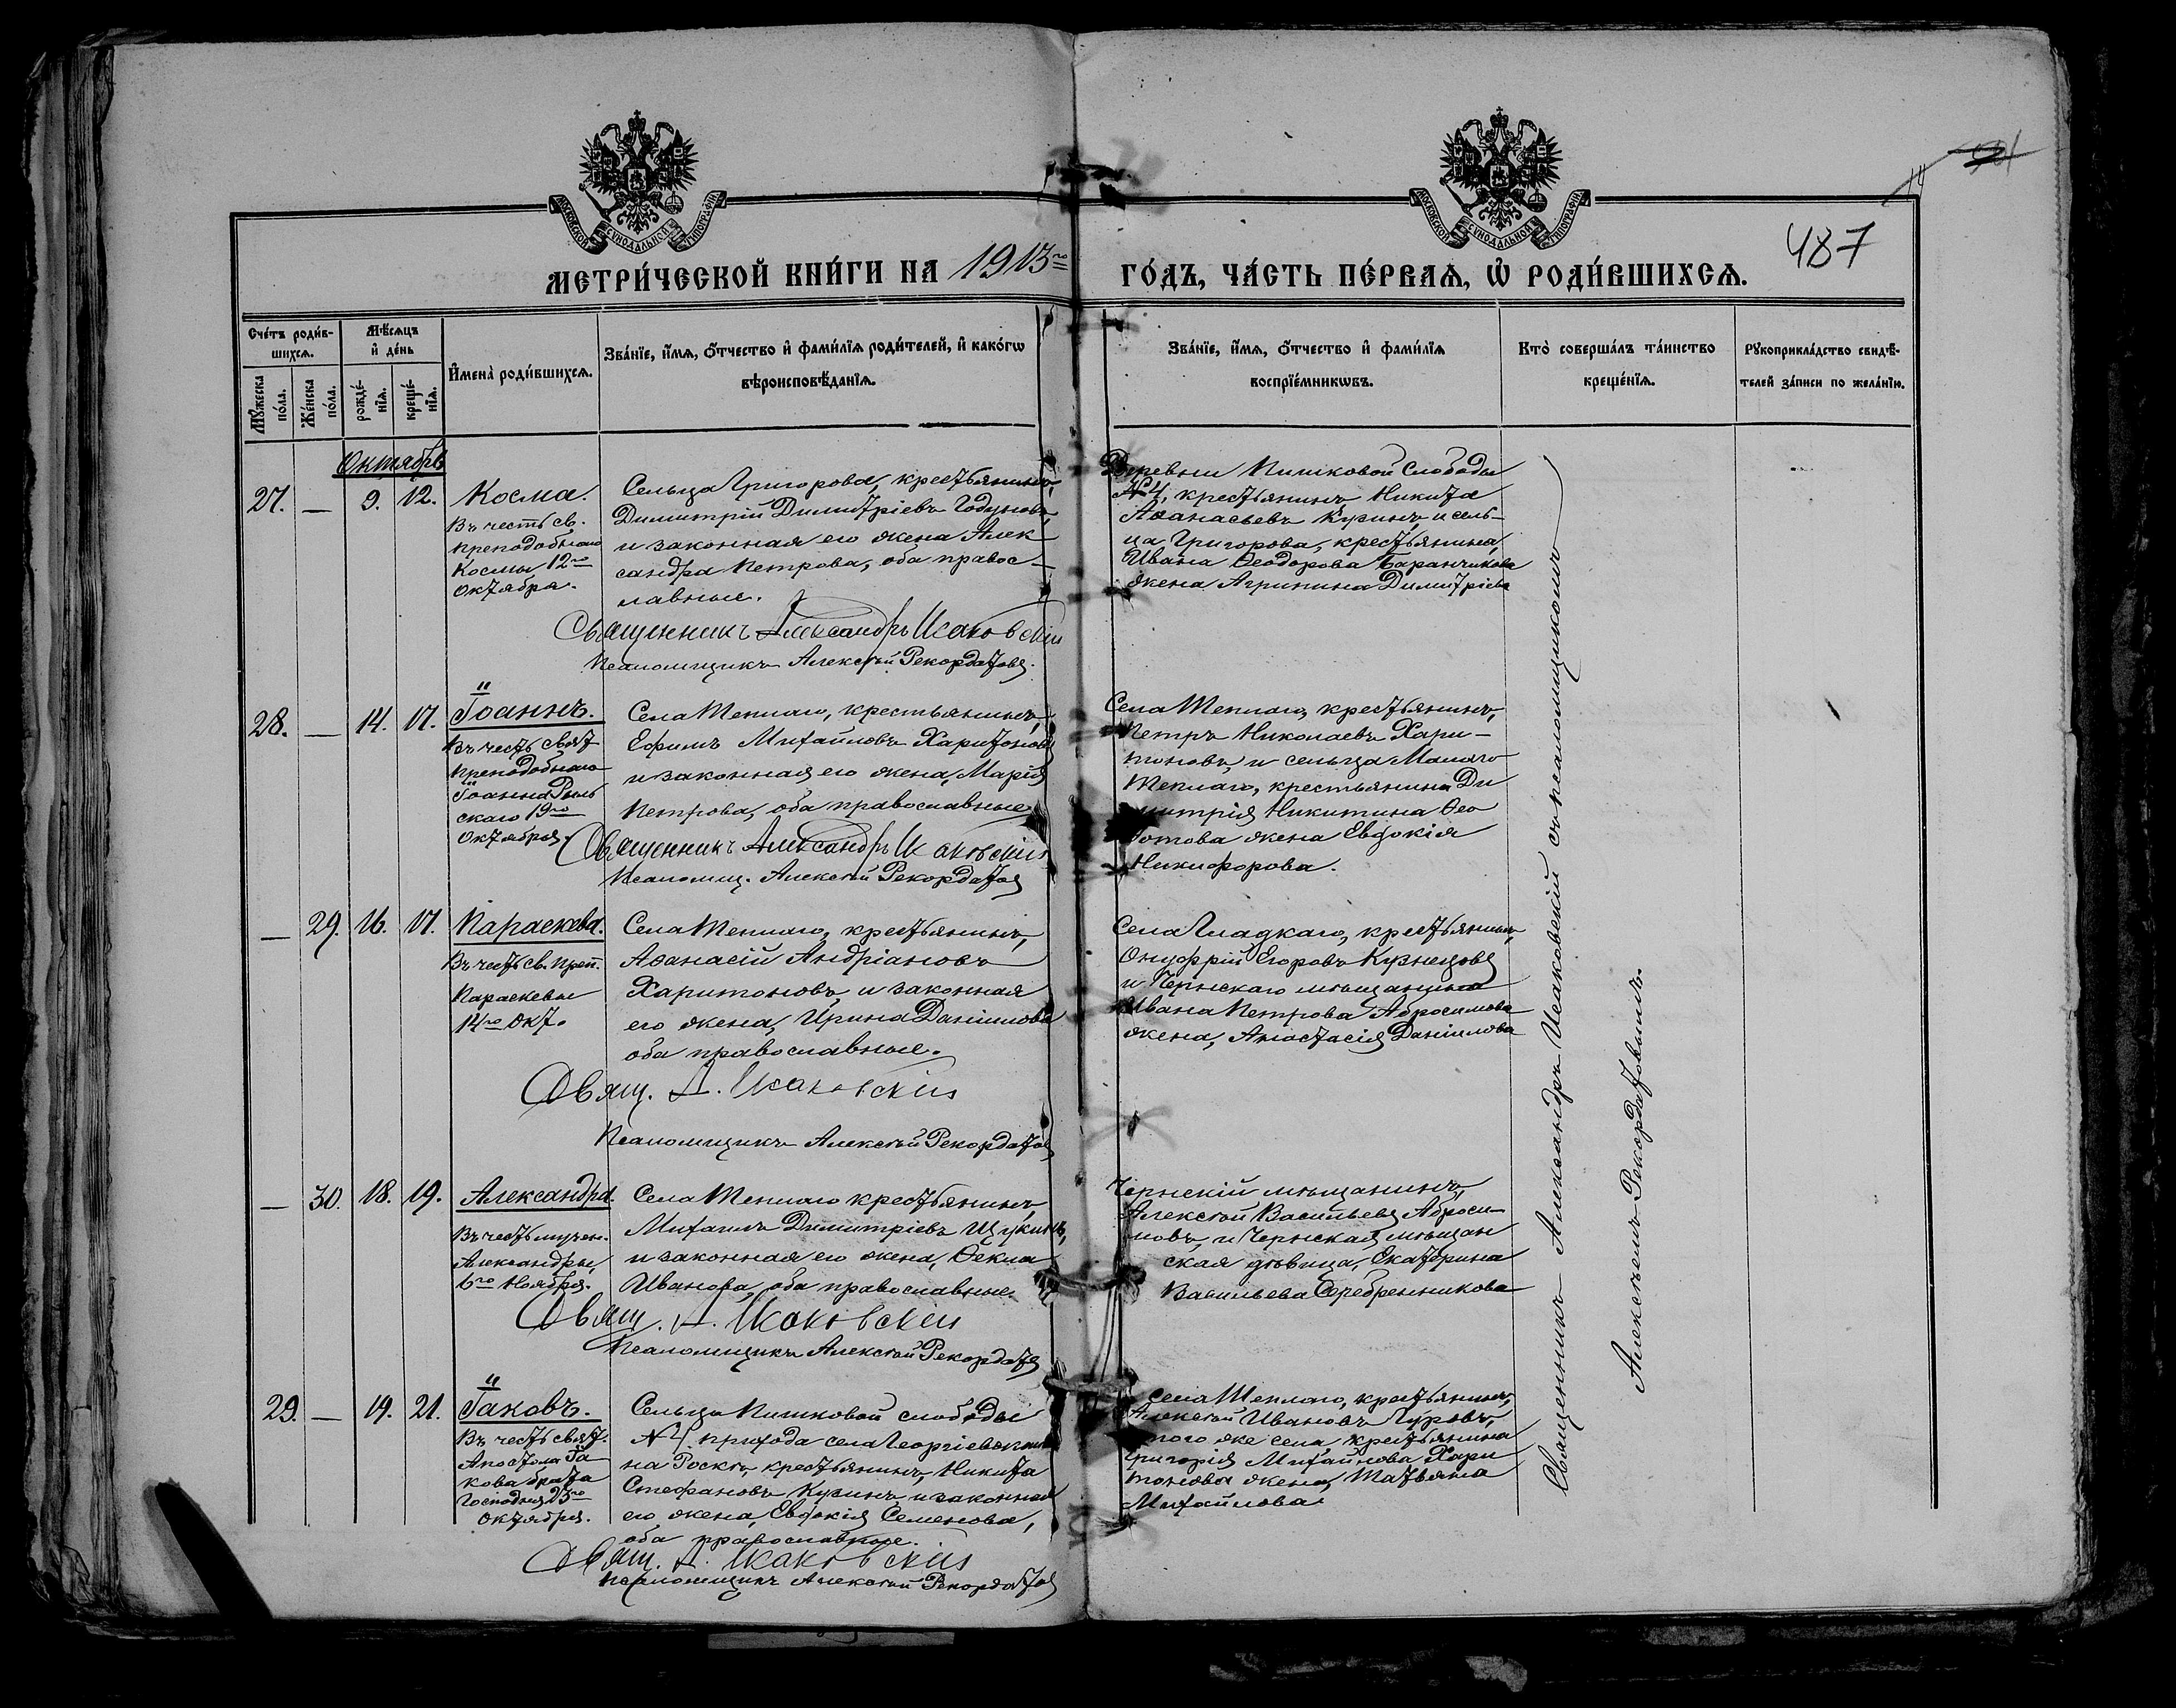 487
14
МОСКОВСКОЙ СѴНОДАЛЬНОЙ ТИПОГРАФІИ
МОСКОВСКОЙ СѴНОДАЛЬНОЙ ТИПОГРАФІИ
МЕТРИ́ЧЕСКОЙ КНИ́ГИ НА 1913го
ГО́ДЪ, ЧА́СТЬ ПЕ́РВАѦ, Ѡ҆ РОДИ́ВШИХСѦ.
Сче́тъ роди́в-
шихсѧ.
Мѣ́сѧцъ
и҆ де́нь
Мꙋ́жеска
по́ла.
Же́нска
по́ла.
рожде́-
нїѧ.
креще́-
нїѧ.
И҆мена̀ роди́вшихсѧ.
Зва́нїе, и҆́мѧ, ѻ҆́тчество и҆ фами́лїѧ роди́телей, и҆ како́гѡ
вѣроисповѣ́данїѧ.
Зва́нїе, и҆́мѧ, ѻ҆́тчество и҆ фами́лїѧ
воспрїе́мникѡвъ.
Кто̀ соверша́лъ та́инство
креще́нїѧ.
Рꙋкоприкла́дство свидѣ́-
телей за́писи по жела́нїю.
Октябрь
27. — 9. 12. Косма.
Въ честь св.
преподобнаго
Космы 12го
октября.
Сельца Григорова, крестьянинъ,
Димитрій Димитріевъ Годуновъ,
и законная его жена Алек-
сандра Петрова, оба правос-
лавные.
Священникъ Александръ Исаковскій
Псаломщикъ Алексѣй Рекордатовъ.
Деревни Пишковой Слободы
№ 4, крестьянинъ Никита
Аѳанасьевъ Кузинъ, и сель-
ца Григорова, крестьянина,
Ивана Ѳеодорова Баранчикова
жена Агрипина Димитріева
28. — 14. 17. Іоаннъ.
Въ честь свят
преподобнаго
Іоанна Рыль
скаго 19го
октября.
Села Теплаго, крестьянинъ,
Ефимъ Михайловъ Харитоновъ
и законная его жена, Марія
Петрова, оба православные.
Священникъ Александръ Исаковскій
Псаломщ. Алексѣй Рекордатовъ
Села Теплаго, крестьянинъ,
Петръ Николаевъ Хари-
тоновъ, и сельца Малаго
Теплаго, крестьянина Ди
митрія Никитина Ѳео
жена Евдокія
Никифорова.
— 29. 16. 17. Параскева.
Въ честь св. преп.
Параскевы
14го Окт.
Села Теплаго, крестьянинъ,
Аѳанасій Андріановъ
Харитоновъ, и законная
его жена, Ирина Даніилова
оба православные.
Свящ. А. Исаковскій
Псаломщикъ Алексѣй Рекордатовъ
Села Гладкаго, крестьянинъ,
Онуфрій Егоровъ Кузнецовъ
и Чернскаго мѣщанина
Ивана Петрова Абросимова
жена, Анастасія Даніилова
— 30. 18. 19. Александра.
Въ честь мучен.
Александры,
6го Ноября.
Села Теплаго крестьянинъ,
Михаилъ Димитріевъ Щукинъ,
и законная его жена, Ѳекла
Иванова, оба православные.
Свящ. А. Исаковскій
Псаломщикъ Алексѣй Рекордатовъ
Чернскій мѣщанинъ,
Алексѣй Васильевъ Аброси-
мовъ, и Чернская мѣщан
ская дѣвица, Екатерина
Васильева Серебренникова
29. — 19. 21. Іаковъ.
Въ честь свят.
Апостола Іа
кова брата
Господня 23го
октября.
Сельца Пишковой слободы
№ 4. прихода села Георгіевскаго
на Роскѣ, крестьянинъ, Никита
Стефановъ Кузинъ, и законная
его жена, Евдокія Семенова,
оба православные.
Свящ. А. Исаковскій
Псаломщикъ Алексѣй Рекордатовъ
Села Теплаго, крестьянинъ,
Алексѣй Ивановъ Гуровъ,
того же села, крестьянина
Григорія Михайлова Хари
тонова жена, Татьяна
Михайлова.
Священникъ Александръ Исаковскій съ псаломщикомъ
Алексѣемъ Рекордатовымъ.